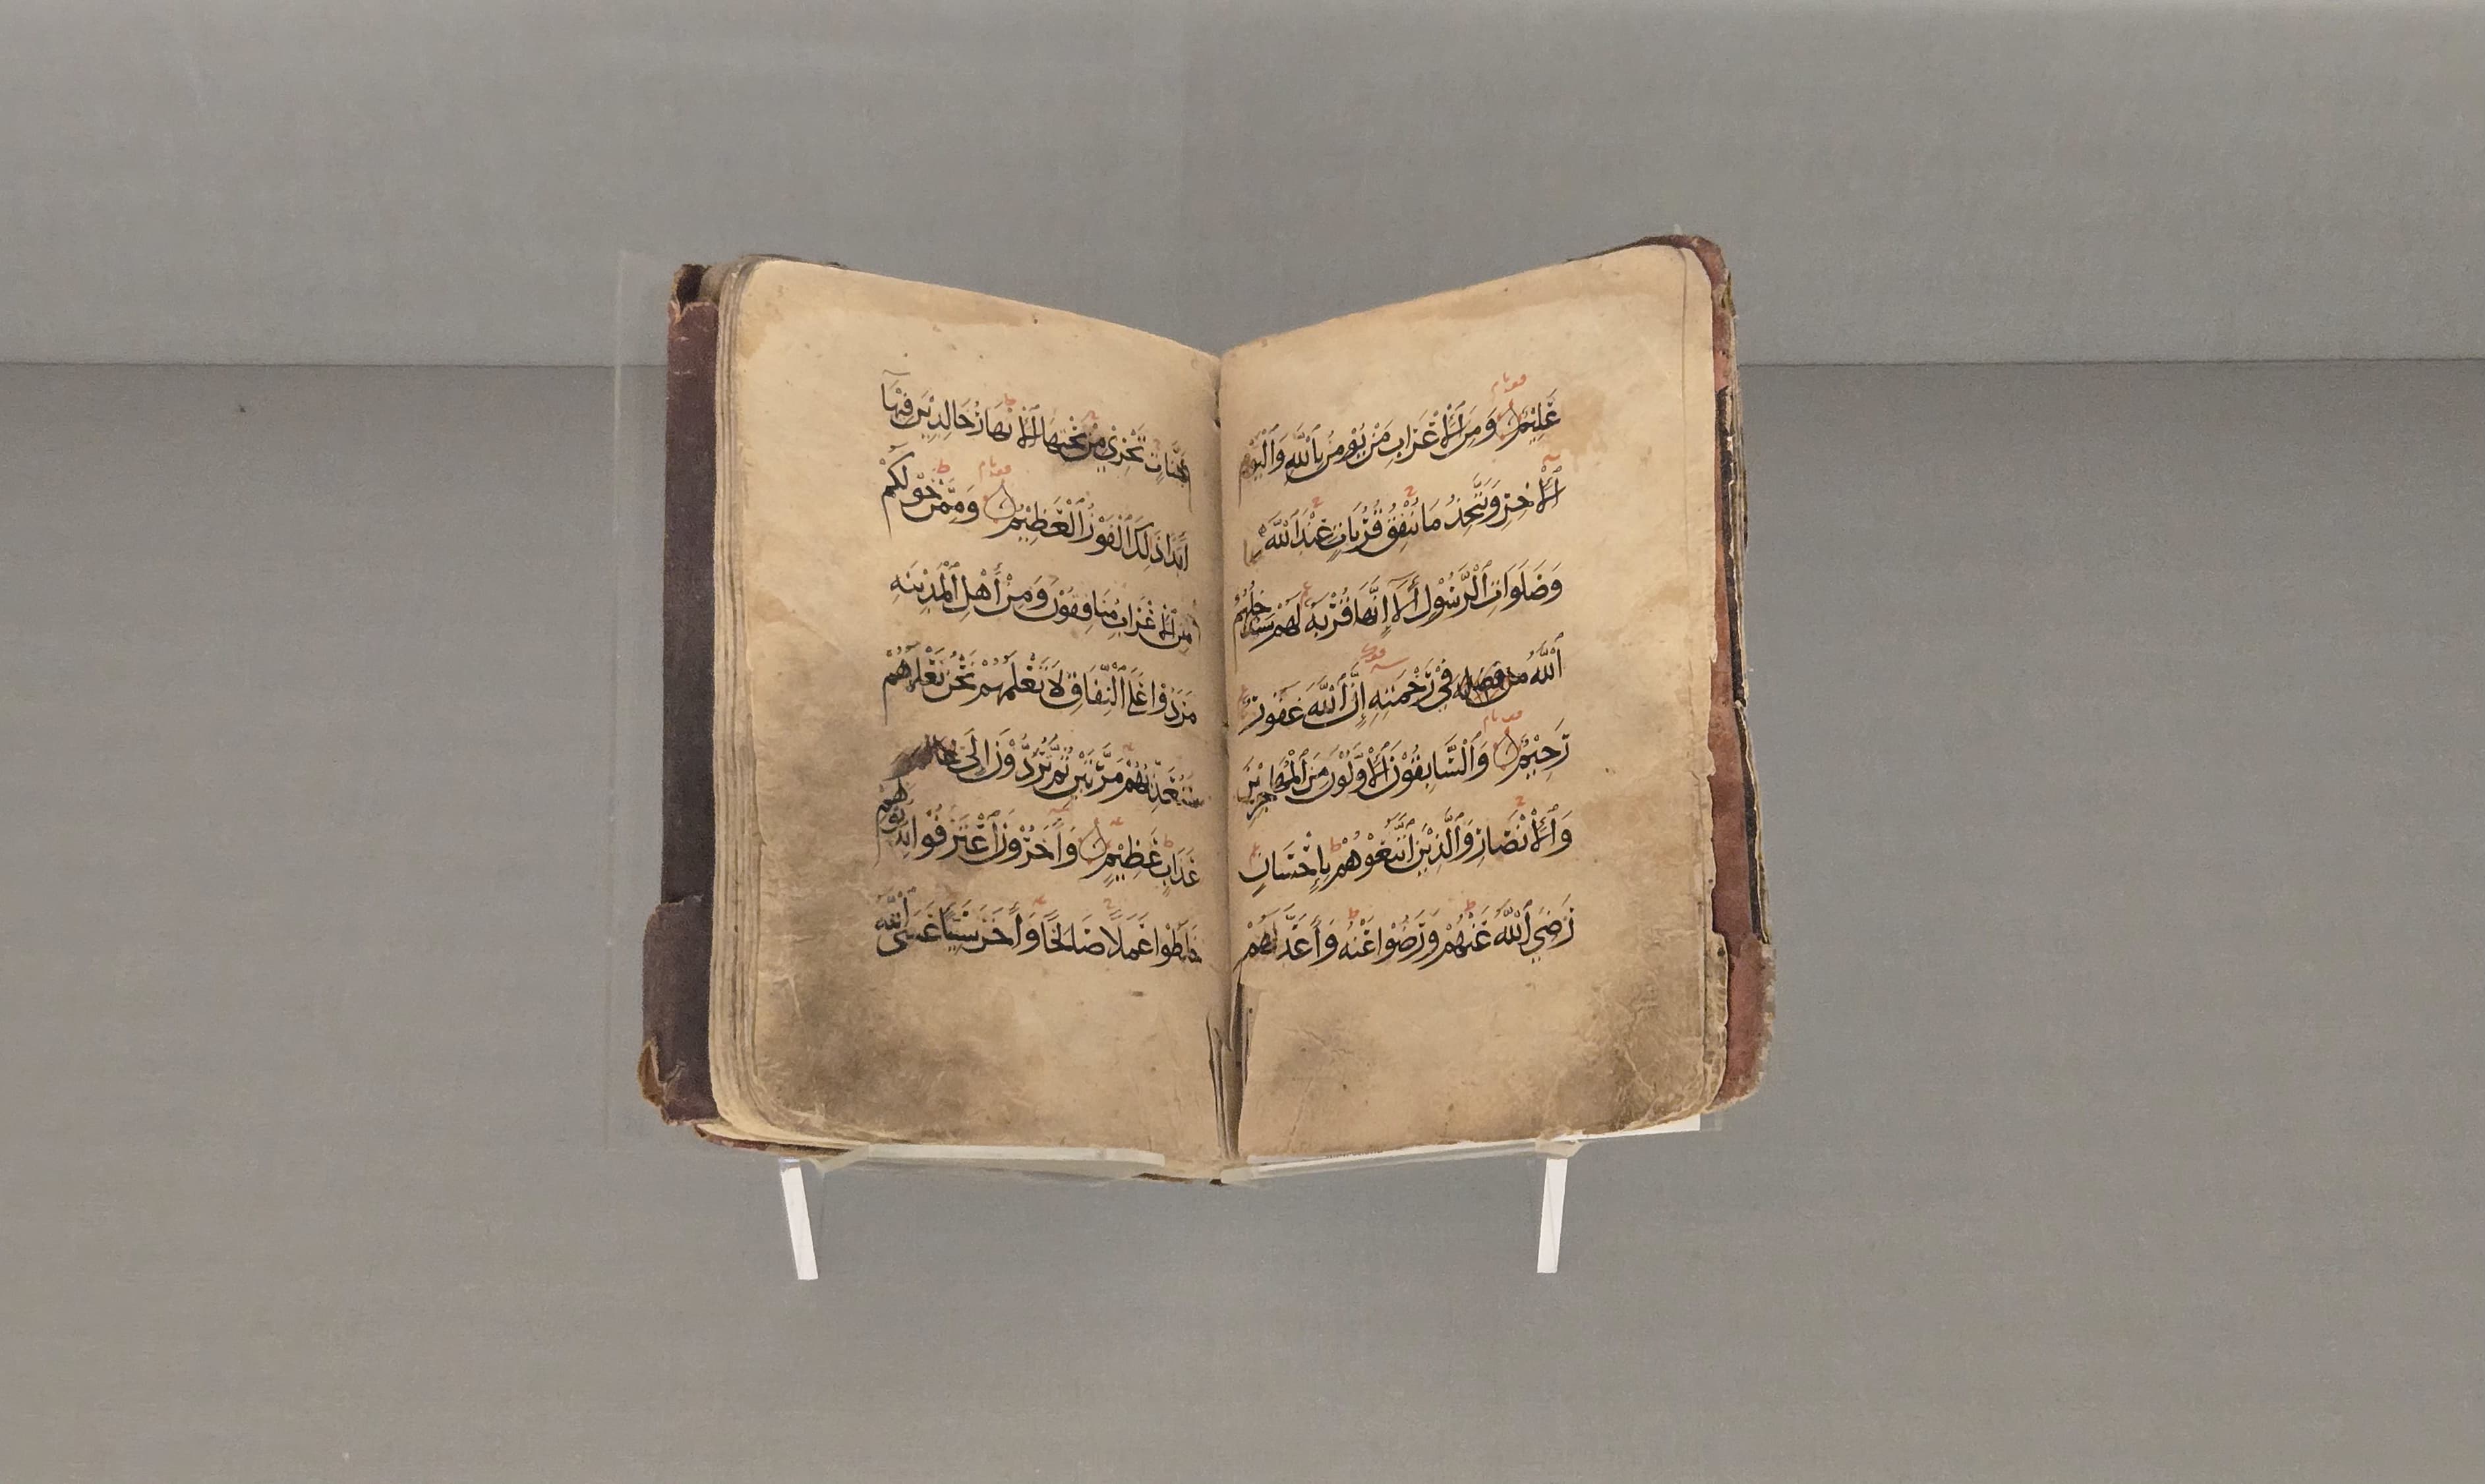 عَلِيْمٌ وَمِنَ الْأَعْرَابِ مَنْ يُؤْمِنُ بِاللَّهِ وَالْيَوْمِ
الْأٰخِرِ وَيَتَّخِذُ مَا يُنْفِقُ قُرُبَاتٍ عِنْدَ اللَّهِ
وَصَلَوَاتِ الرَّسُوْلِ أَلَا إِنَّهَا قُرْبَةٌ لَهُمْ سَيُدْخِلُهُمُ
اللَّهُ فِيْ رَحْمَتِهِ إِنَّ اللَّهَ غَفُوْرٌ
رَحِيْمٌ وَالسَّابِقُوْنَ الْأَوَّلُوْنَ مِنَ الْمُهَاجِرِيْنَ
وَالْأَنْصَارِ وَالَّذِيْنَ اتَّبَعُوْهُمْ بِإِحْسَانٍ
رَضِيَ اللَّهُ عَنْهُمْ وَرَضُوْا عَنْهُ وَأَعَدَّ لَهُمْ
جَنَّاتٍ تَجْرِيْ مِنْ تَحْتِهَا الْأَنْهَارُ خَالِدِيْنَ فِيْهَا
أَبَدًا ذٰلِكَ الْفَوْزُ الْعَظِيْمُ وَمِمَّنْ حَوْلَكُمْ
مِنَ الْأَعْرَابِ مُنَافِقُوْنَ وَمِنْ أَهْلِ الْمَدِيْنَةِ
مَرَدُوْا عَلَى النِّفَاقِ لَا تَعْلَمُهُمْ نَحْنُ نَعْلَمُهُمْ
سَنُعَذِّبُهُمْ مَرَّتَيْنِ ثُمَّ يُرَدُّوْنَ إِلَى
عَذَابٍ عَظِيْمٍ وَأٰخَرُوْنَ اعْتَرَفُوْا بِذُنُوْبِهِمْ
خَلَطُوْا عَمَلًا صَالِحًا وَأٰخَرَ سَيِّئًا عَسَى اللَّهُ